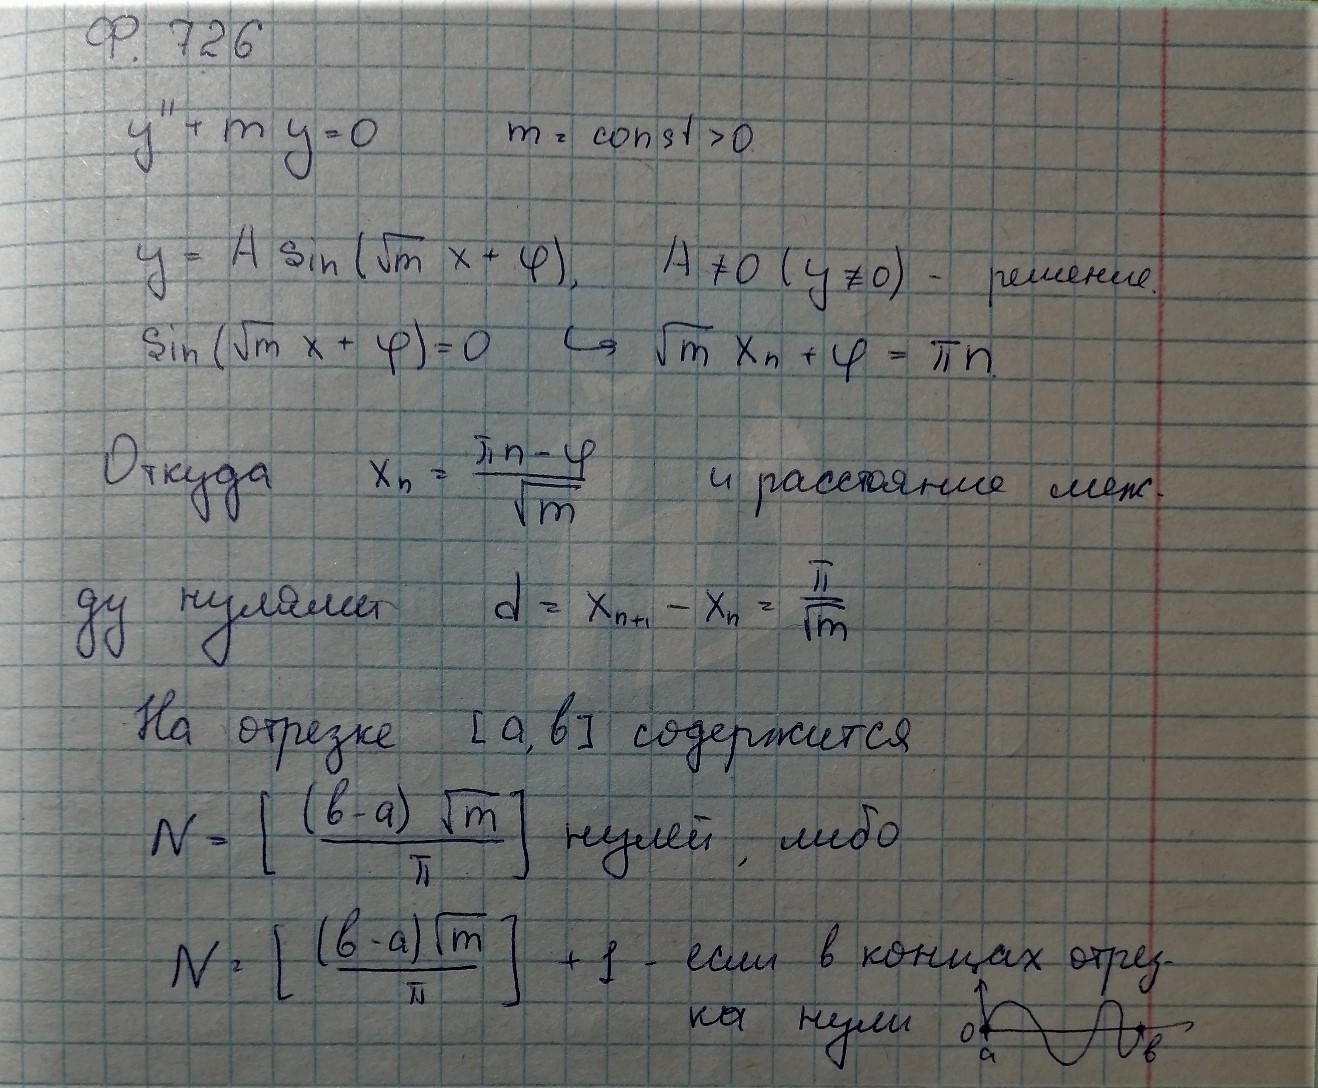 Ф. 726
y'' + m y = 0 m = const > 0
y = A sin(√m x + φ), A ≠ 0 (y ≢ 0) - решение.
sin(√m x + φ) = 0 ↪ √m xₙ + φ = πn.
Откуда xₙ = (πn - φ)/√m и расстояние меж-
ду нулями d = xₙ₊₁ - xₙ = π/√m
На отрезке [a, b] содержится
N = [(b-a) √m / π] нулей, либо
N = [(b-a)√m / π] + 1 - если в концах отрез-
ка нули
0 a b